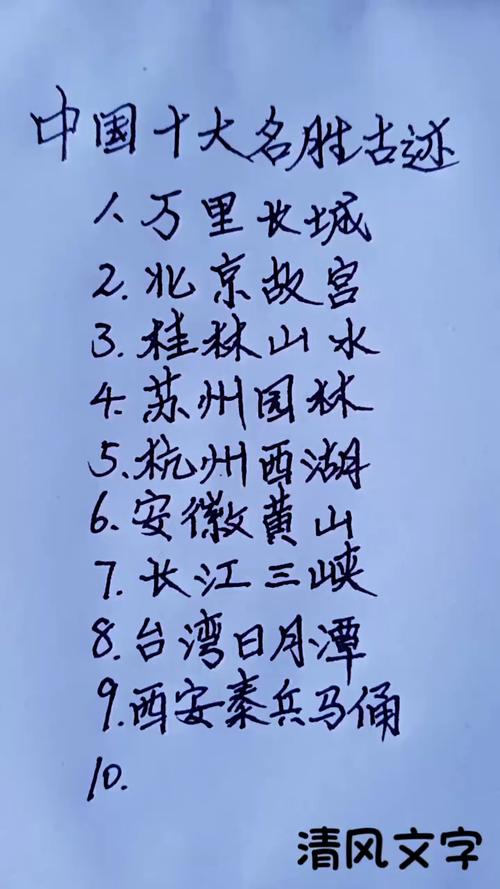 中国十大名胜古迹
1、万里长城
2.北京故宫
3.桂林山水
4.苏州园林
5.杭州西湖
6.安徽黄山
7.长江三峡
8.台湾日月潭
9.西安秦兵马俑
10.
清风文字